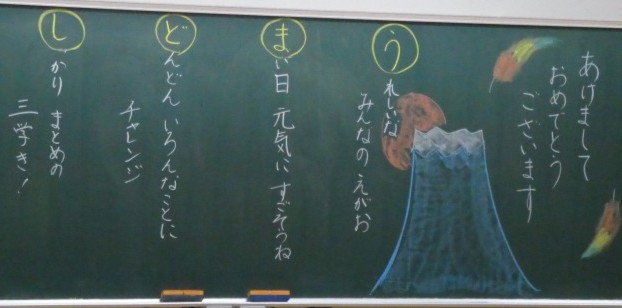 あけまして
おめでとう
ございます
うれしいな
みんなの えがお
まい日 元気に すごそうね
どんどん いろんなことに
チャレンジ
しっかり まとめの
三学き!